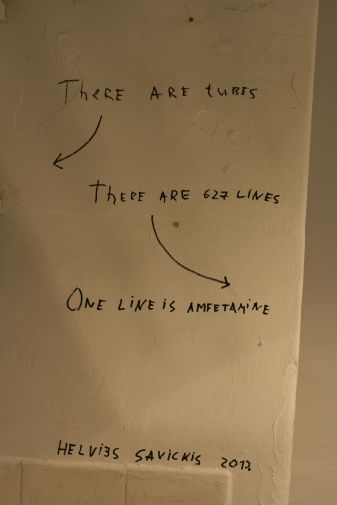 ThERE ARE tUBES
ThERE ARE 627 LINES
ONE LiNE iS AMFETAMiNE
HELVi3S SAVICKIS 2017